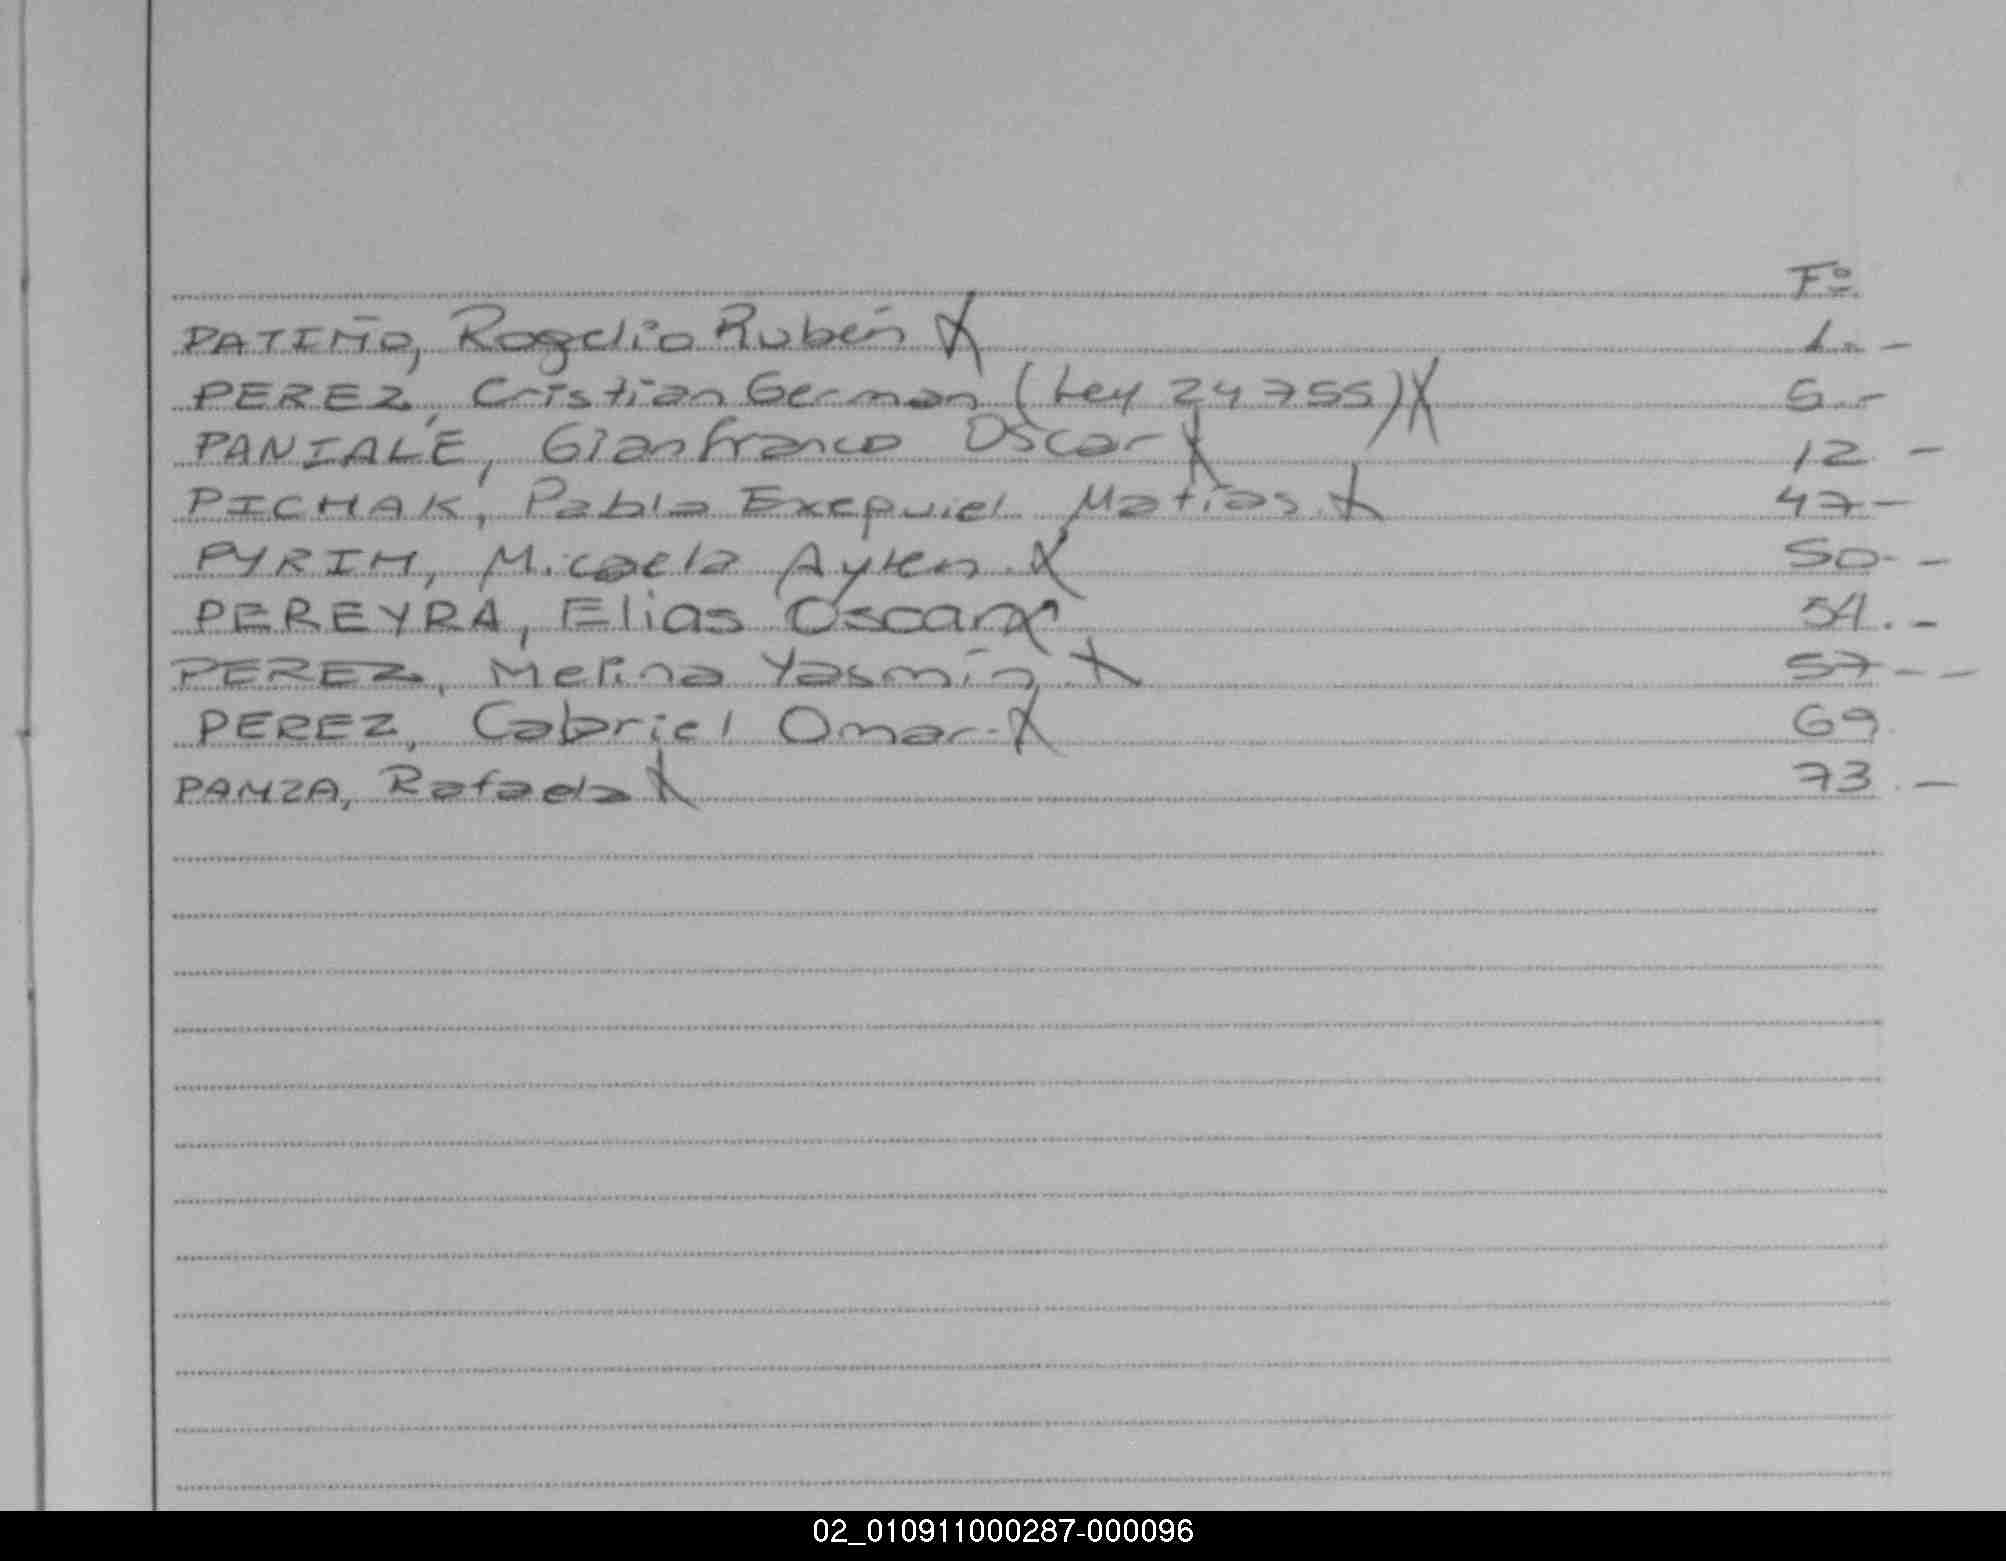 Fº
PATIÑO, Rogelio Rubén X 1.-
PEREZ, Cristian German (Ley 24755) X 5.-
PANIALE, Gianfranco Oscar X 12.-
PICHAK, Pablo Exequiel Matías X 47-
PYRIH, Micaela Aylen X 50--
PEREYRA, Elias Oscar X 54.-
PEREZ, Melina Yasmín X 57--
PEREZ, Gabriel Omar X 69.
PANZA, Rafaela X 73.-
02_010911000287-000096